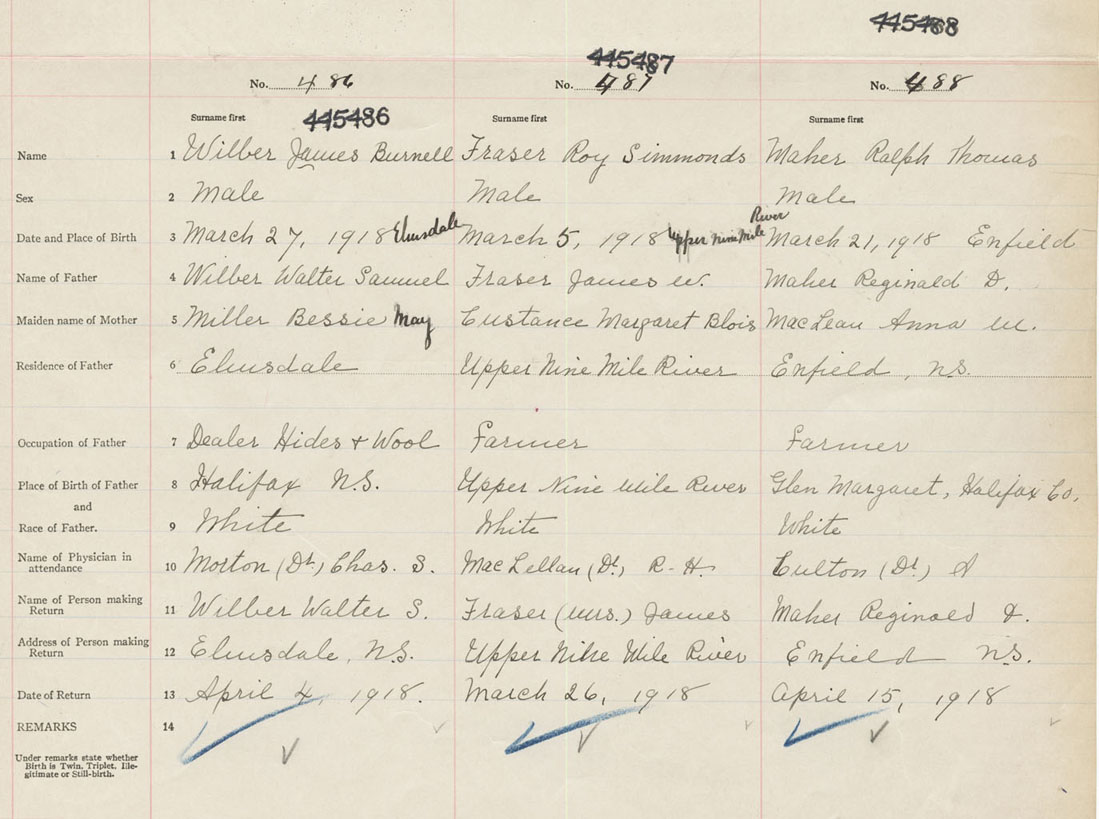 445488
445487
No. 486 No. 487 No. 488
445486
Surname first Surname first Surname first
Name 1 Wilber James Burnell Fraser Roy Simmonds Maher Ralph Thomas
Sex 2 Male Male Male
River
Date and Place of Birth 3 March 27, 1918 Elmsdale March 5, 1918 Upper Nine Mile March 21, 1918 Enfield
Name of Father 4 Wilber Walter Samuel Fraser James W. Maher Reginald D.
Maiden name of Mother 5 Miller Bessie May Custance Margaret Blois MacLean Anna M.
Residence of Father 6 Elmsdale Upper Nine Mile River Enfield, N.S.
Occupation of Father 7 Dealer Hides + Wool Farmer Farmer
Place of Birth of Father 8 Halifax N.S. Upper Nine Mile River Glen Margaret, Halifax Co.
and
Race of Father. 9 White White White
Name of Physician in
attendance 10 Morton (Dr.) Chas. S. MacLellan (Dr.) R. H. Culton (Dr.) A
Name of Person making
Return 11 Wilber Walter S. Fraser (Mrs.) James Maher Reginald D.
Address of Person making
Return 12 Elmsdale, N.S. Upper Nine Mile River Enfield N.S.
Date of Return 13 April 4, 1918. March 26, 1918 April 15, 1918
REMARKS 14
Under remarks state whether
Birth is Twin, Triplet, Ille-
gitimate or Still-birth.